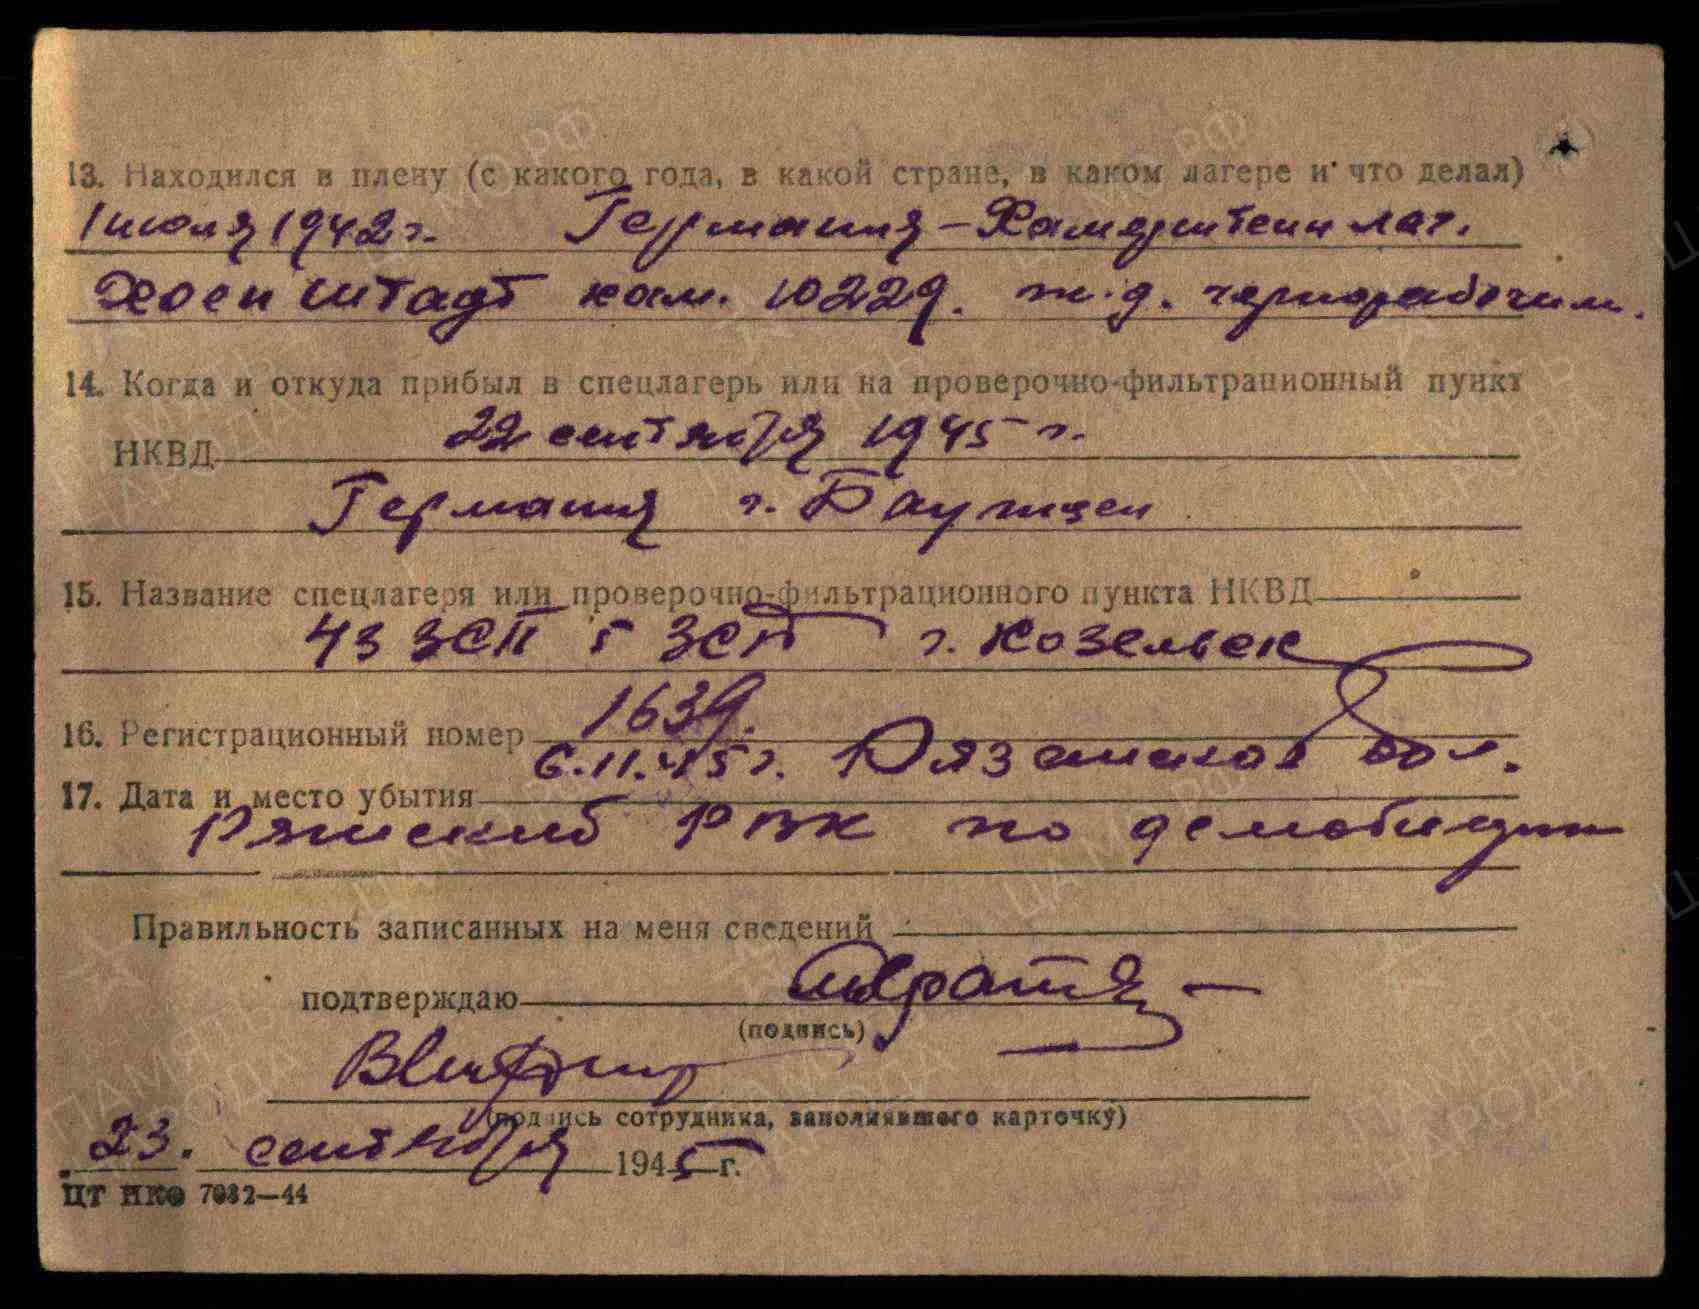 13. Находился в плену (с какого года, в какой стране, в каком лагере и что делал)
1 июля 1942 г. Германия – Хамерштеин лаг.
Хоенштадт ком. 10229. ж.д. чернорабочим.
14. Когда и откуда прибыл в спецлагерь или на проверочно-фильтрационный пункт
22 сентября 1945 г.
НКВД
Германия г. Баутцен
15. Название спецлагеря или проверочно-фильтрационного пункта НКВД
43 ЗСП 5 ЗСД г. Козельск
16. Регистрационный номер 1639.
6.11.45 г. Рязанская обл.
17. Дата и место убытия
Ряжский РВК по демобилизации
Правильность записанных на меня сведений
подтверждаю
(подпись)
(подпись сотрудника, заполнявшего карточку)
23. сентября 1945 г.
ЦТ НКО 7032—44
ПАМЯТЬ НАРОДА
ЦА МО РФ